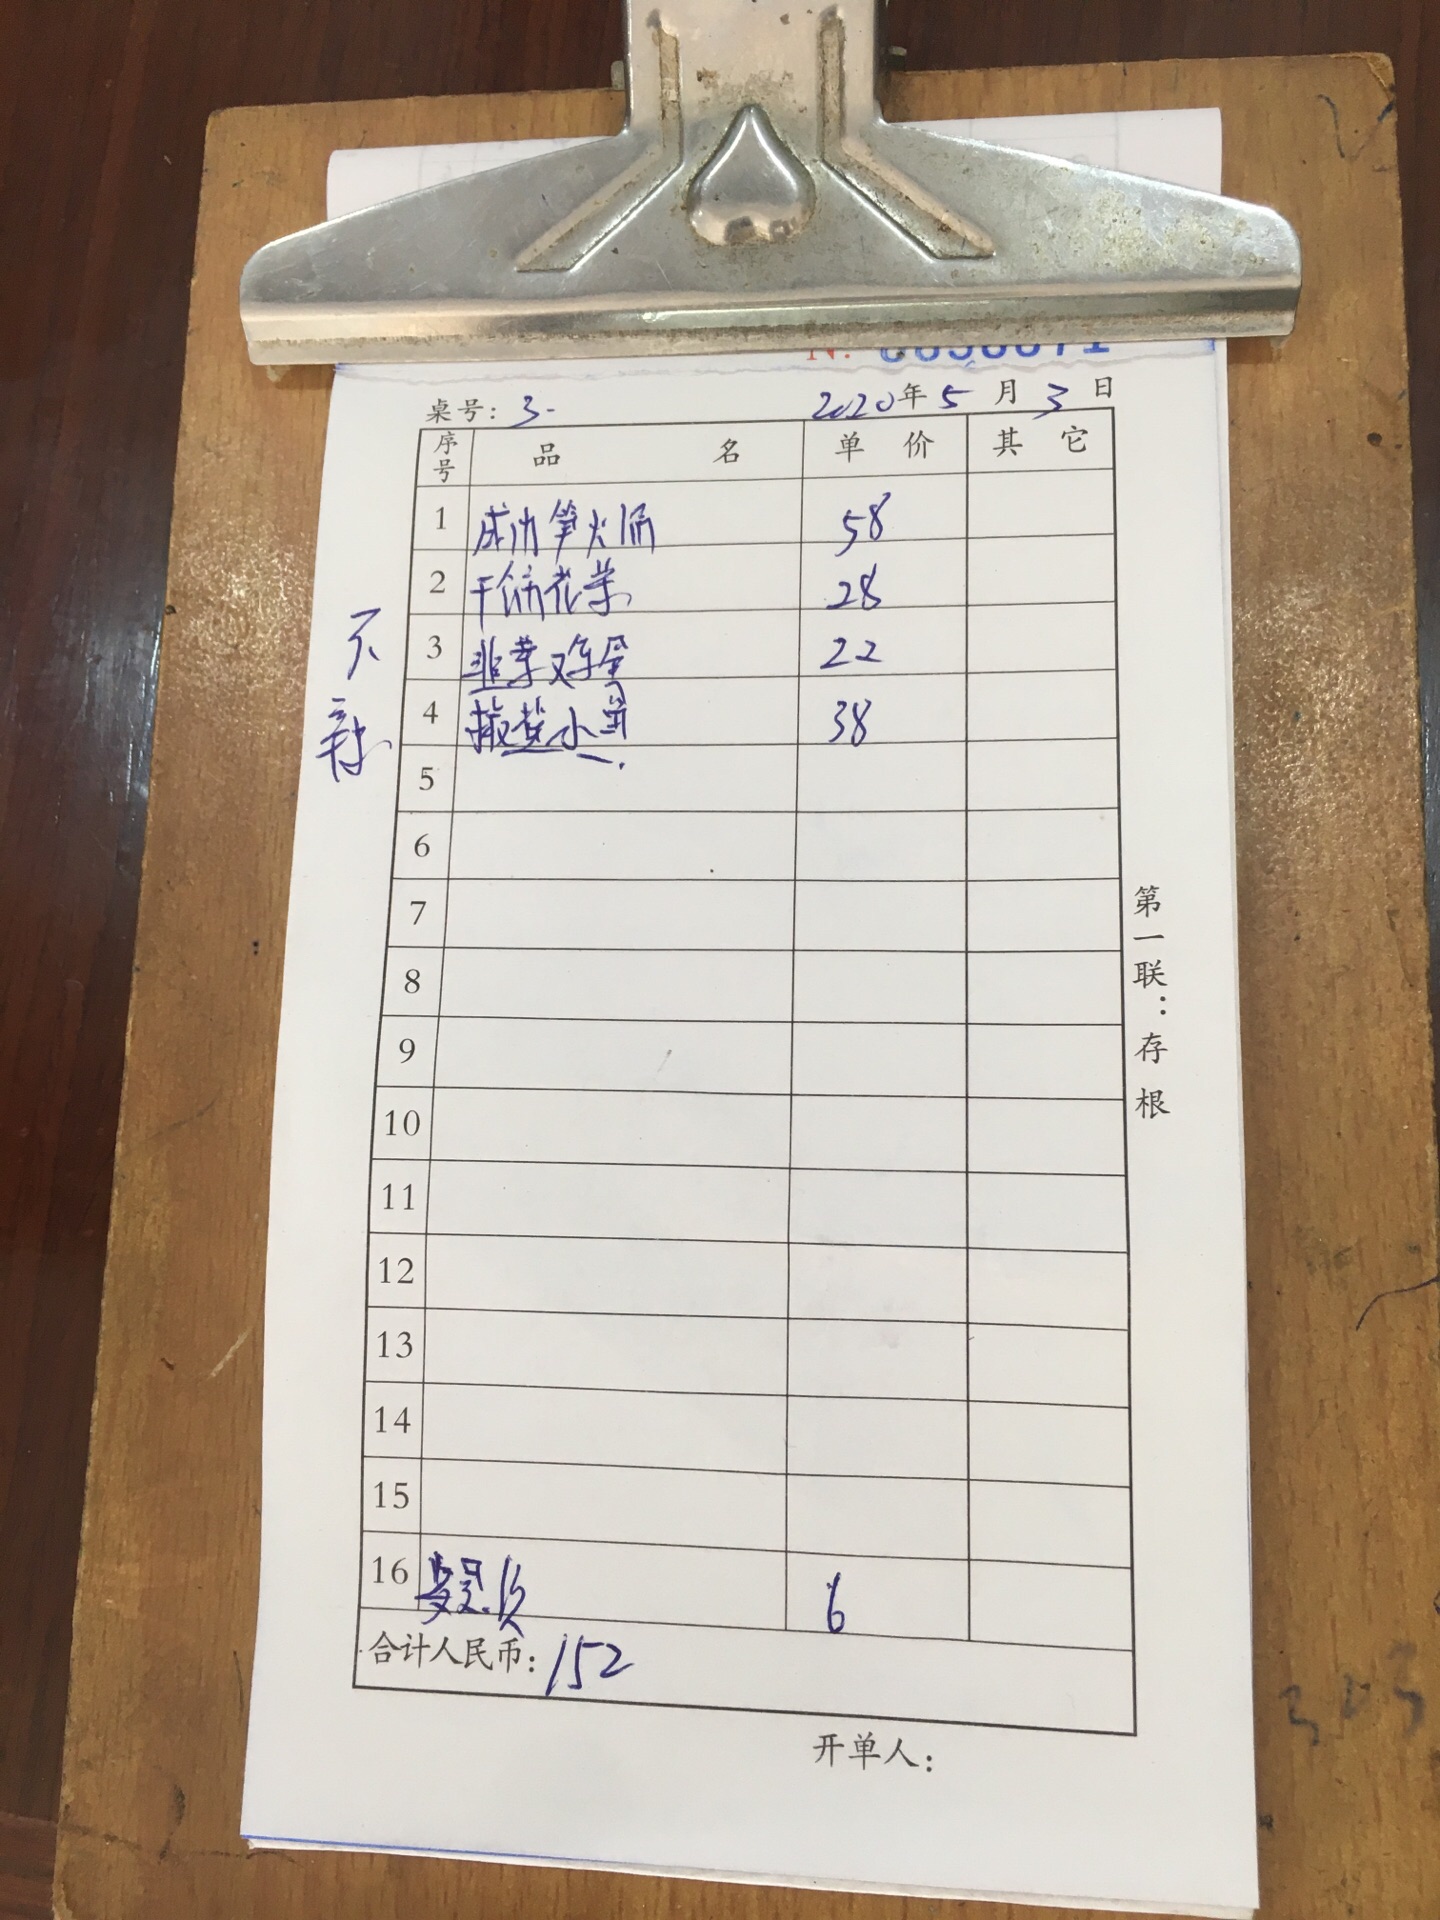 桌号: 3- 2020年5月3日
序号 品名 单价 其它
1 58
2 干锅花菜 28
3 韭菜鸡蛋 22
4 38
5
6
7
8
9
10
11
12
13
14
15
16 餐具 6
合计人民币: 152
开单人:
不辣
第一联: 存根